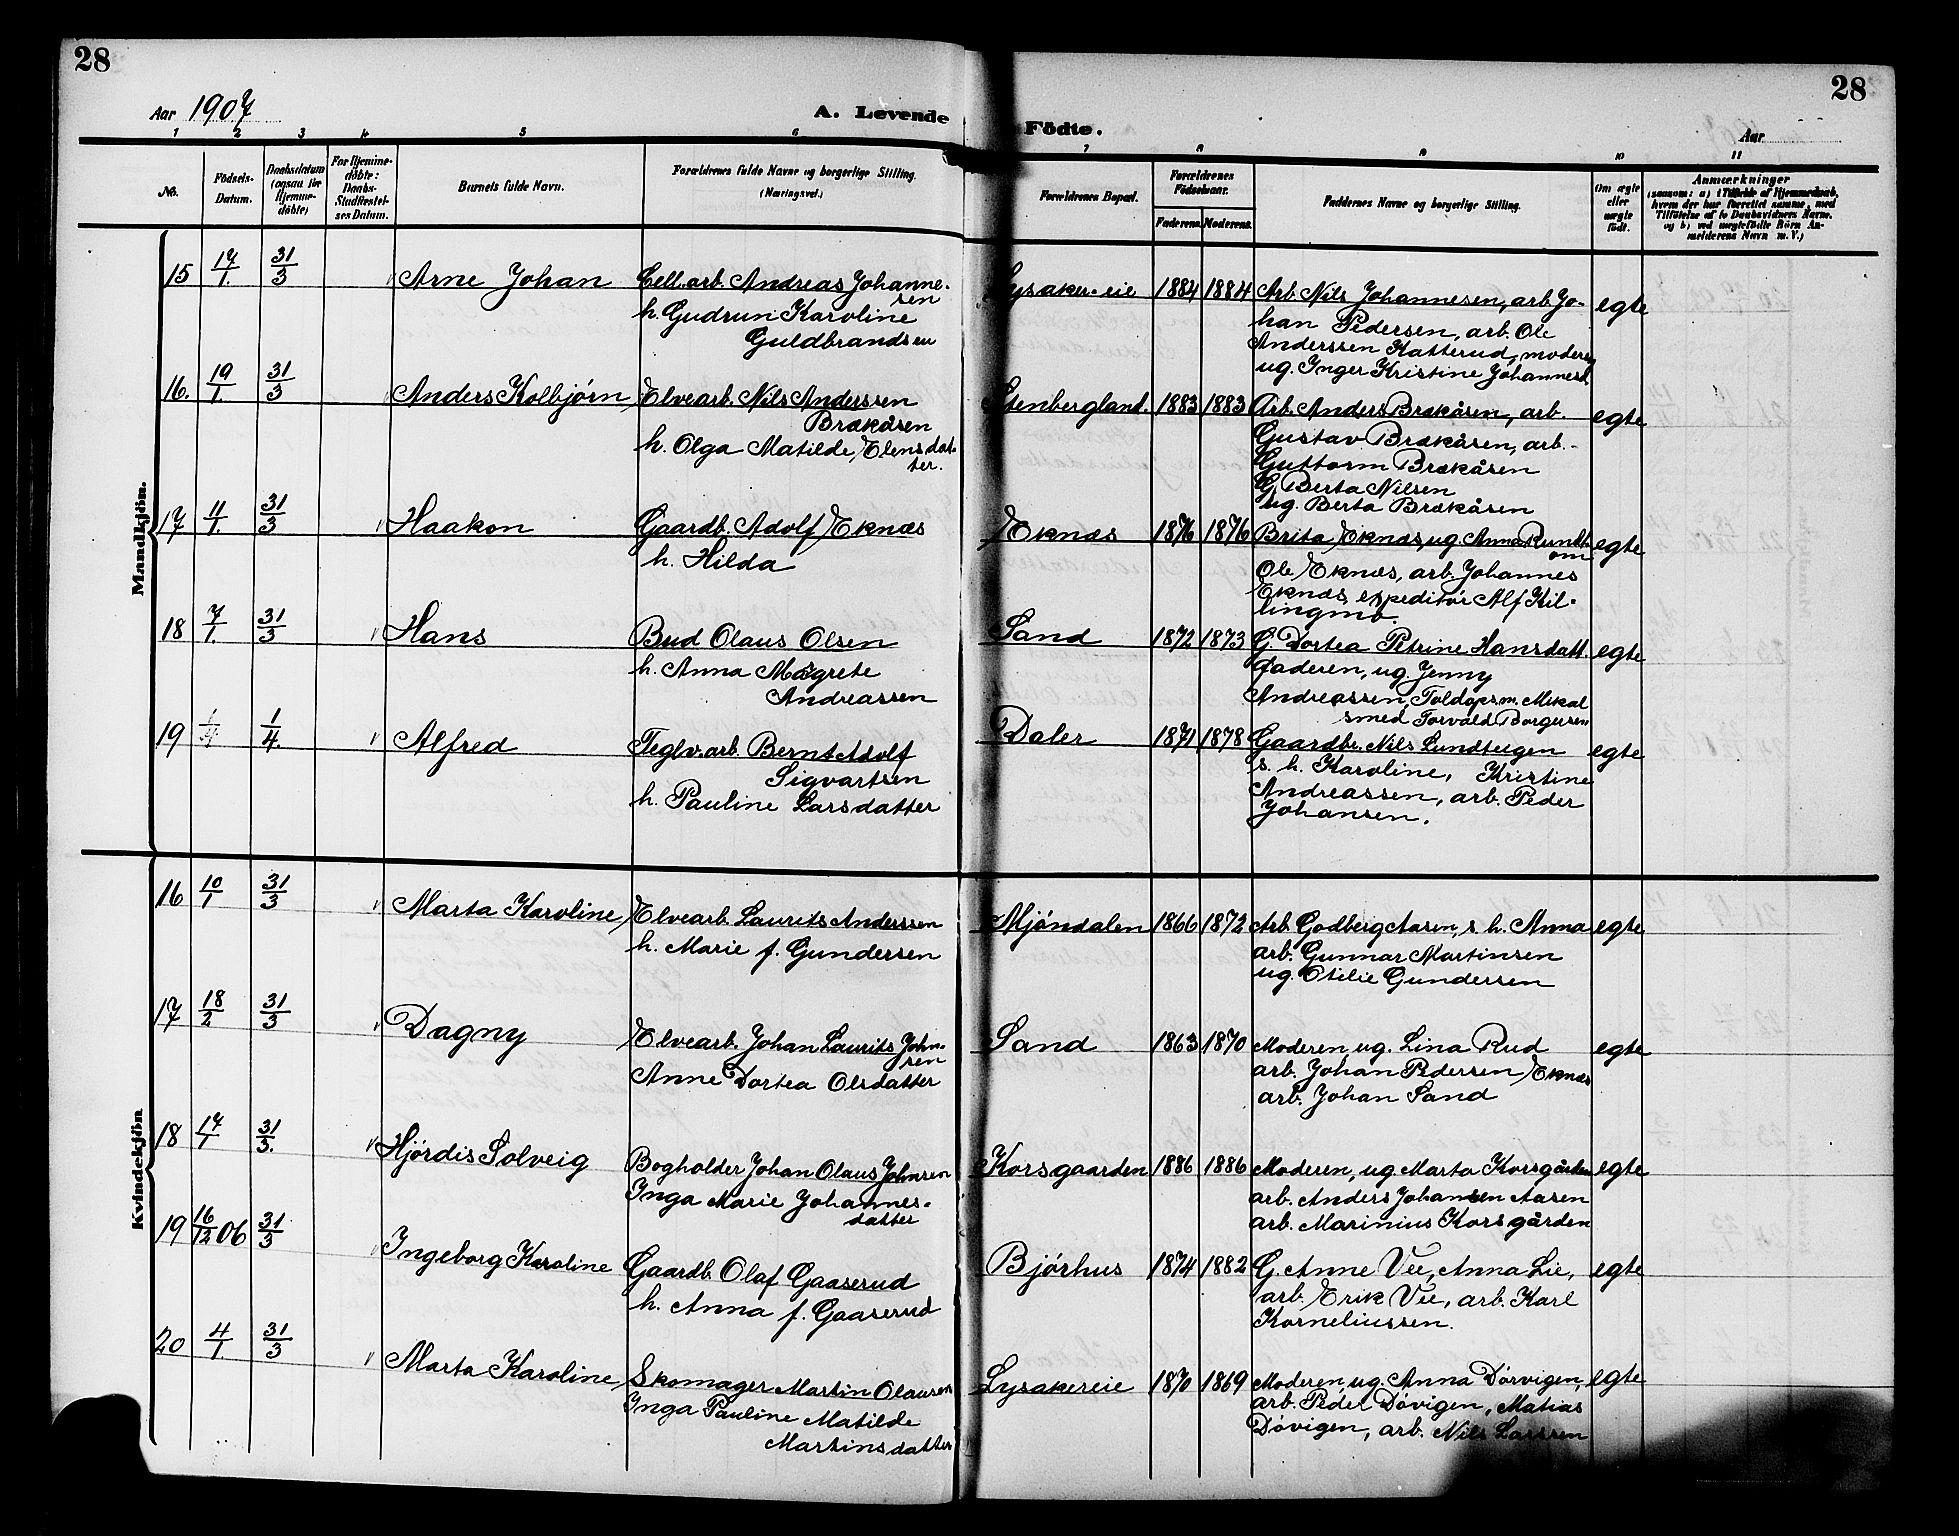 28
28
Aar 1907
A. Levende
Födte.
Aar
1 2 3 4 5 6 7 8 9 10 11
No.
Födsels-
Datum.
Daabsdatum
(ogsaa for
Hjemme-
döbte)
For Hjemme-
döbte:
Daabs-
Stadfæstel-
ses Datum.
Barnets fulde Navn.
Forældrenes fulde Navne og borgerlige Stilling.
(Næringsvei.)
Forældrenes Bopæl.
Forældrenes
Födselsaar.
Faderens. Moderens.
Faddernes Navne og borgerlige Stilling.
Om ægte
eller
uægte
født.
Anmærkninger
(saasom: a) i Tilfælde af Hjemmedaab,
hvem der har forrettet samme, med
Tilföielse af to Daabsvidners Navne,
og b) ved uægtefödte Börn An-
melderens Navn m. V.)
Mandkjön.
15 17/1. 31/3 Arne Johan Cell.arb. Andreas Johanne-
sen
h. Gudrun Karoline
Guldbrandsen
Lysaker-eie 1884 1884 Arb. Nils Johannesen, arb. Jo-
han Pedersen, arb. Ole
Anderssen Katterud, moderen
ug. Inger Kristine Johannesd.
egte
16. 19/1 31/3 Anders Kolbjörn Elvearb. Nils Anderssen
Brækåsen
h. Olga Matilde Elensdat-
ter.
Stenbergland. 1883 1883 Arb. Anders Brækåsen, arb.
Gustav Brækåsen, arb.
Guttorm Brækåsen
G. Berta Nilsen
ug. Berta Brækåsen
egte
17 11/1. 31/3 Haakon Gaardb. Adolf Eknæs
h. Hilda
Eknæs 1876 1876 Brita Eknæs, ug. Anna Rundt-
om
Ole Eknæs, arb. Johannes
Eknæs expeditör Alf Kil-
lingmo.
egte
18 7/1. 31/3 Hans Bud Olaus Olsen
h. Anna Magrete
Andreassen
Sand 1872 1873 G. Dortea Petrine Hansdatt.
faderen, ug. Jenny
Andreassen, Toldops.m. Mikal
smed Torvald Borgersen
egte
19 1/4. Alfred Teglv.arb. Bernt Adolf
Sigvartsen
h. Pauline Larsdatter
Daler 1871 1878 Gaardbr. Nils Lundteigen
s. h. Karoline, Kristine
Andreassen, arb. Peder
Johansen.
egte
Kvindekjön
16 10/1 31/3 Marta Karoline Elvearb. Laurits Anderssen
h. Marie f. Gundersen
Mjöndalen 1866 1872 Arb. Godberg Aasen, s. h. Anna
arb. Gunnar Martinsen
ug. Otilie Gundersen
egte
17 18/2 31/3 Dagny Elvearb. Johan Laurits John-
sen
Anne Dortea Olsdatter
Sand 1863 1870 Moderen, ug. Lina Rud
arb. Johan Pedersen Eknæs
arb. Johan Sand
egte
18 17/1 31/3. Hjördis Solveig Bogholder Johan Olaus Johnsen
Inga Marie Johannes-
datter
Korsgaarden 1886 1886 Moderen, ug. Marta Korsgården
arb. Anders Johansen Aasen
arb. Marinius Korsgården
egte
19 16/12 06 31/3 Ingeborg Karoline Gaardb. Olaf Gaaserud
h. Anna f. Gaaserud
Bjórhus 1874 1882 G. Anne Vee, Anna Lie,
arb. Erik Vee, arb. Karl
Korneliussen.
egte
20 4/1 31/3 Marta Karoline Skomager Martin Olausen
Inga Pauline Matilde
Martinsdatter
Lysakereie 1870 1869 Moderen, ug. Anna Dörvigen,
arb. Peder Dövigen, Matias
Dövigen, arb. Nils Larssen
egte